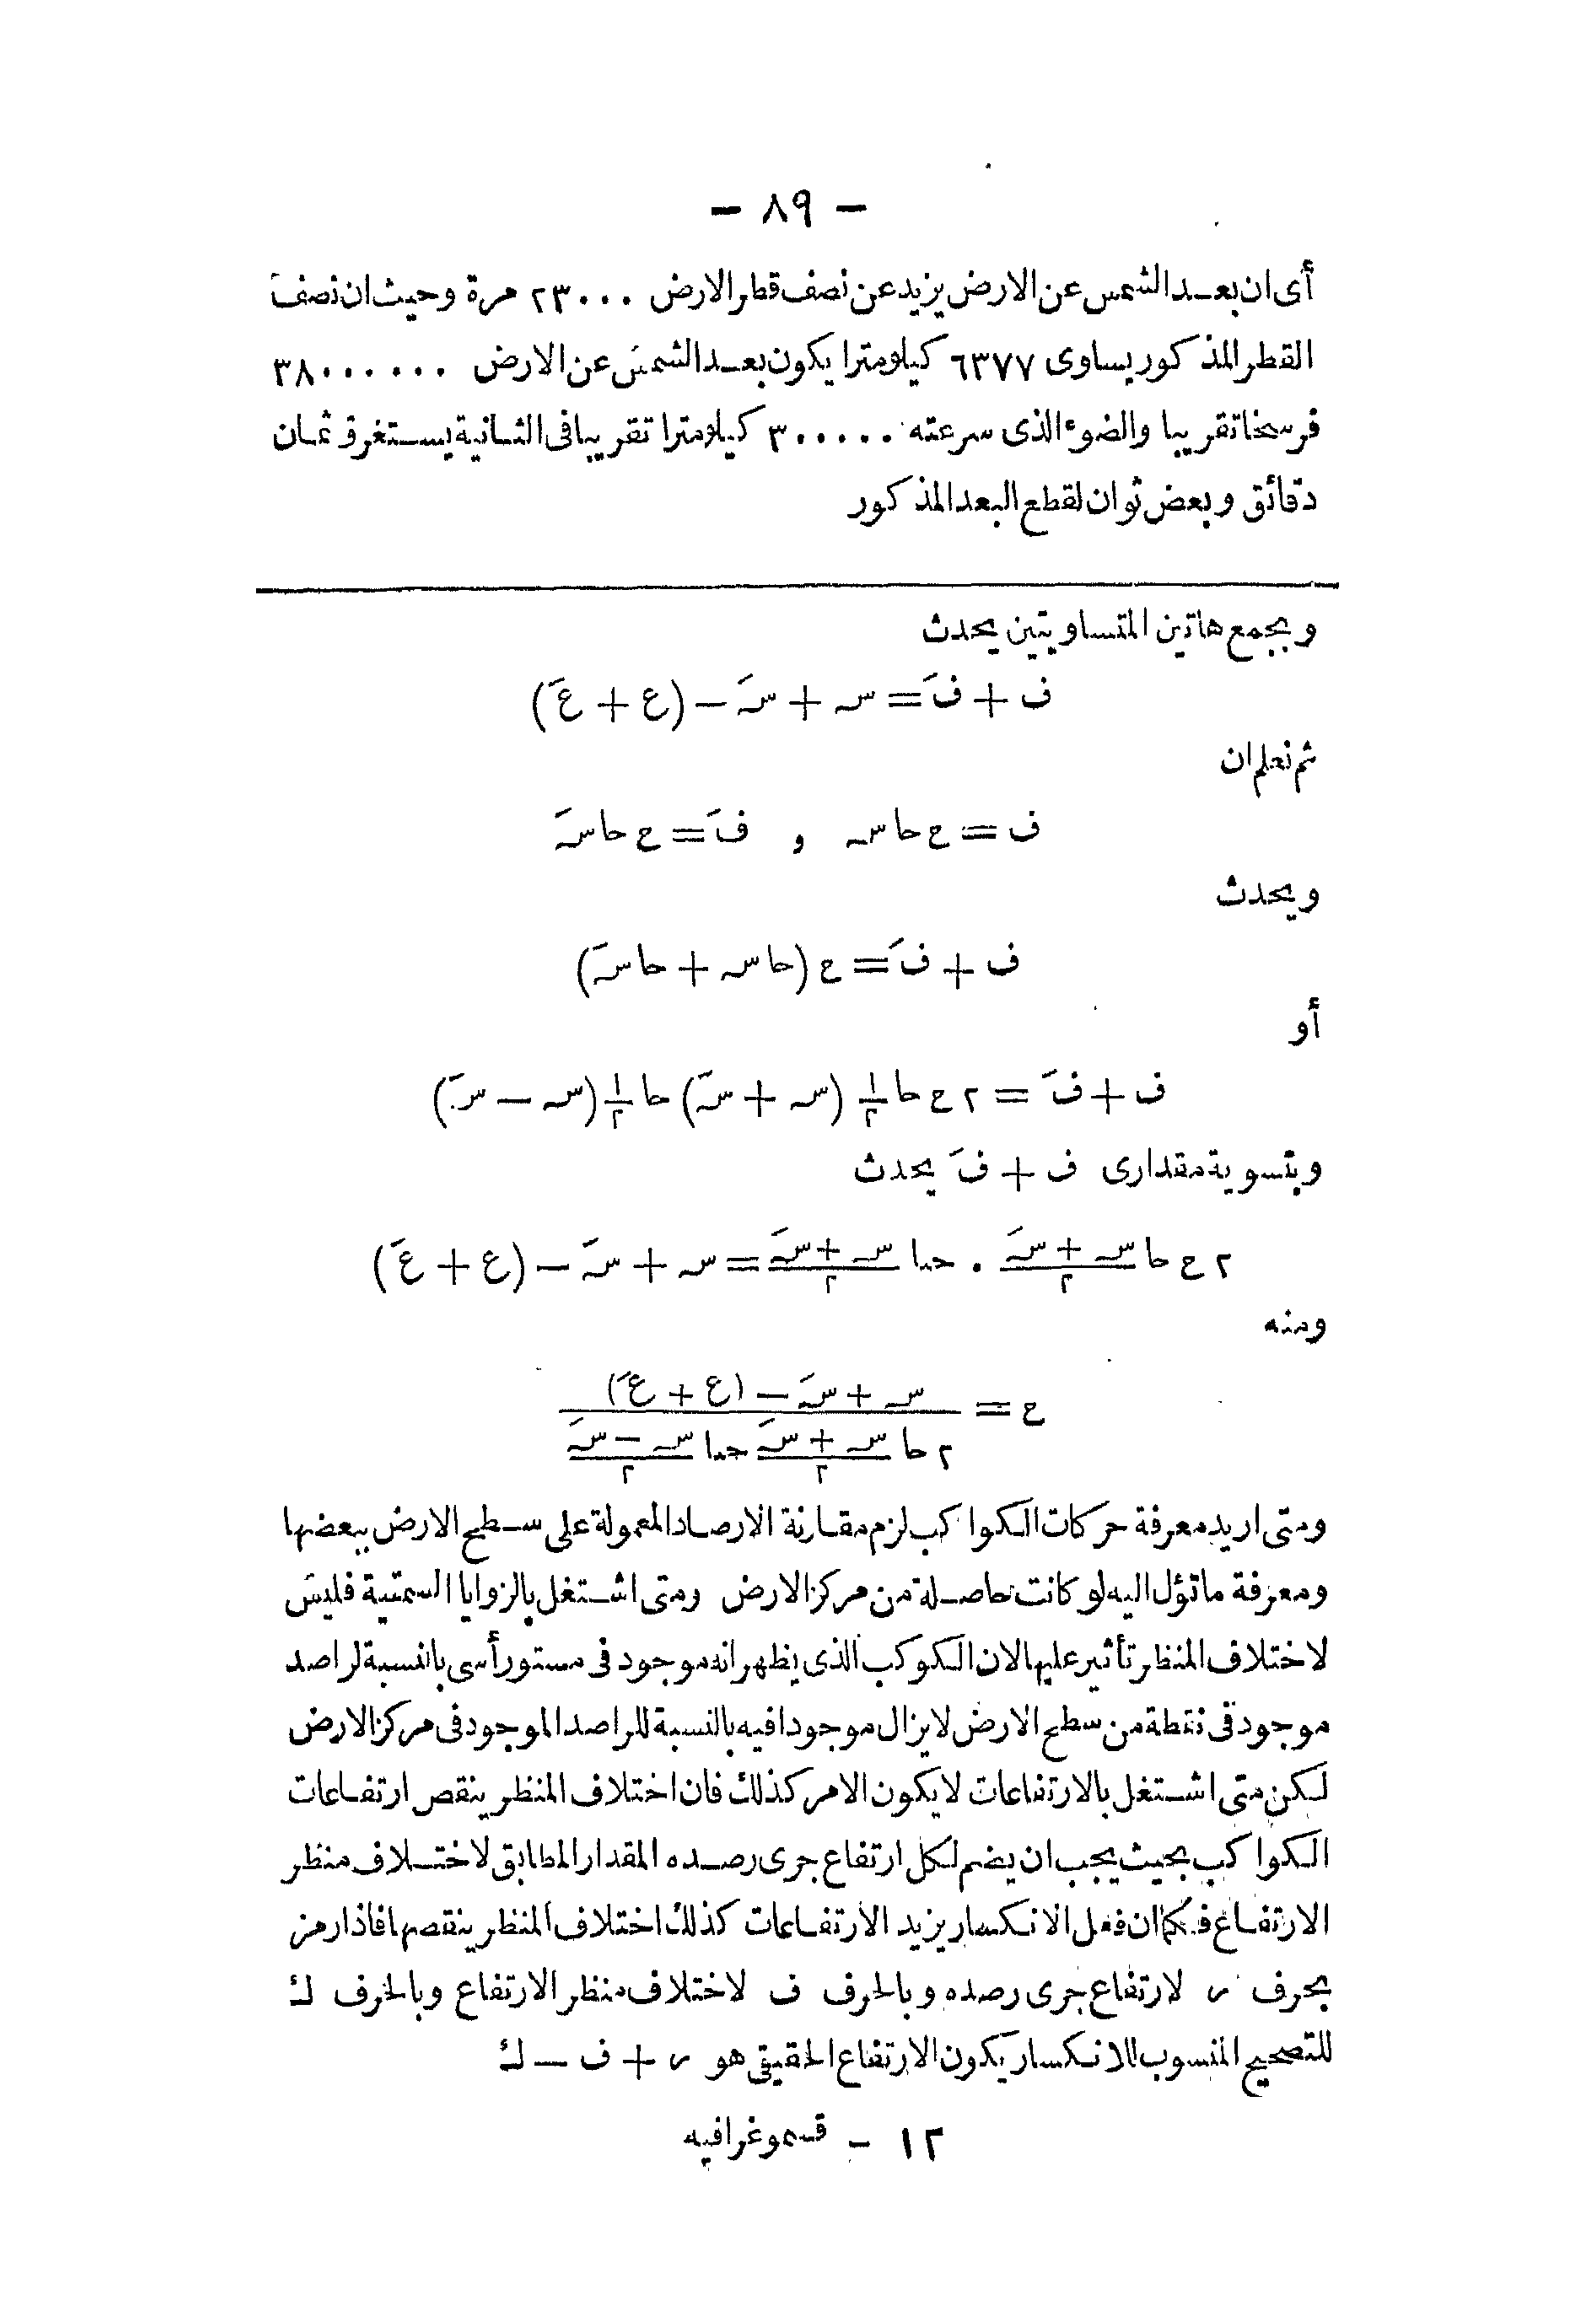 — ٨٩ —
أى ان بعد الشمس عن الارض يزيد عن نصف قطر الارض ٢٣٠٠٠ مرة وحيث ان نصف
القطر المذكور يساوى ٦٣٧٧ كيلومترا يكون بعد الشمس عن الارض ٣٨٠٠٠٠٠٠
فرسخا تقريبا والضوء الذى سرعته ٣٠٠٠٠٠ كيلومترا تقريبا فى الثانية يستغرق ثمان
دقائق وبعض ثوان لقطع البعد المذكور
وبجمع هاتين المتساويتين يحدث
ف + فَ = س + سَ — (ع + عَ)
ثم نعلم ان
ف = ح حا س و فَ = ح حا سَ
ويحدث
ف + فَ = ح (حا س + حا سَ)
أو
ف + فَ = ٢ ح حا ١/٢ (س + سَ) حا ١/٢ (س — سَ)
وبتسوية مقدارى ف + فَ يحدث
٢ ح حا (س + سَ)/٢ . حتا (س + سَ)/٢ = س + سَ — (ع + عَ)
ومنه
ح = (س + سَ — (ع + عَ)) / (٢ حا (س + سَ)/٢ حتا (س — سَ)/٢)
ومتى اريد معرفة حركات الكواكب لزم مقارنة الارصاد المعمولة على سطح الارض ببعضها
ومعرفة ما تؤل اليه لو كانت حاصلة من مركز الارض ومتى اشتغل بالزوايا السمتية فليس
لاختلاف المنظر تأثير عليها لان الكوكب الذى يظهر انه موجود فى مستو رأسى بالنسبة لراصد
موجود فى نقطة من سطح الارض لا يزال موجودا فيه بالنسبة للراصد الموجود فى مركز الارض
لكن متى اشتغل بالارتفاعات لا يكون الامر كذلك فان اختلاف المنظر ينقص ارتفاعات
الكواكب بحيث يجب ان يضم لكل ارتفاع جرى رصده المقدار المطابق لاختلاف منظر
الارتفاع فكما ان فعل الانكسار يزيد الارتفاعات كذلك اختلاف المنظر ينقصها فاذا رمز
بحرف ر لارتفاع جرى رصده وبالحرف ف لاختلاف منظر الارتفاع وبالحرف ك
للتصحيح المنسوب للانكسار يكون الارتفاع الحقيقى هو ر + ف — ك
١٢ — قسموغرافيه